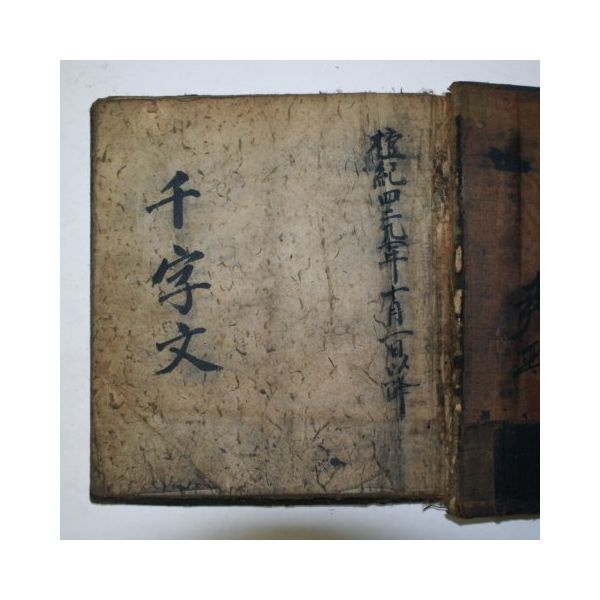 檀紀四二九年十月一日以降
千字文